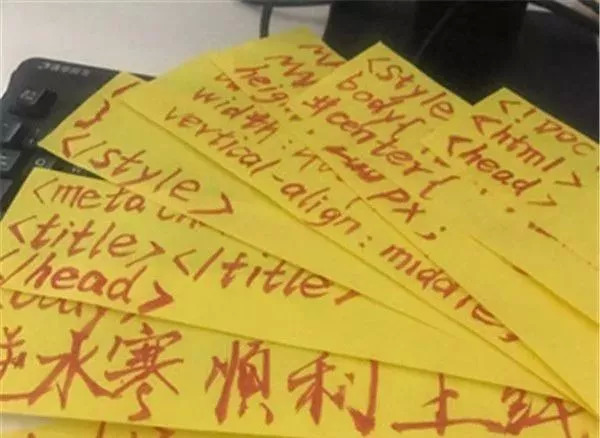 <!DOC
<html>
<head>
<style
body{
#center{
px;
heig
width:
vertical-align: middle;
}
</style>
<meta
<title></title>
</head>
逆水寒 順利上线